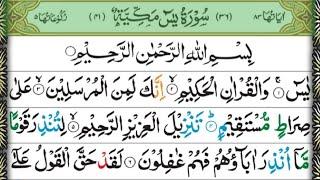 اٰيَاتُهَا ٨٣ (٣٦) سُوْرَةُ يٰسٓ مَكِّيَّةٌ (٤١) رُكُوْعَاتُهَا ٥
بِسْمِ اللّٰهِ الرَّحْمٰنِ الرَّحِيْمِ
يٰسٓ ۚ وَالْقُرْاٰنِ الْحَكِيْمِ ۙ اِنَّكَ لَمِنَ الْمُرْسَلِيْنَ ۙ عَلٰى
صِرَاطٍ مُّسْتَقِيْمٍ ؕ تَنْزِيْلَ الْعَزِيْزِ الرَّحِيْمِ ۙ لِتُنْذِرَ قَوْمًا
مَّاۤ اُنْذِرَ اٰبَآؤُهُمْ فَهُمْ غٰفِلُوْنَ ۟ لَقَدْ حَقَّ الْقَوْلُ عَلٰۤى